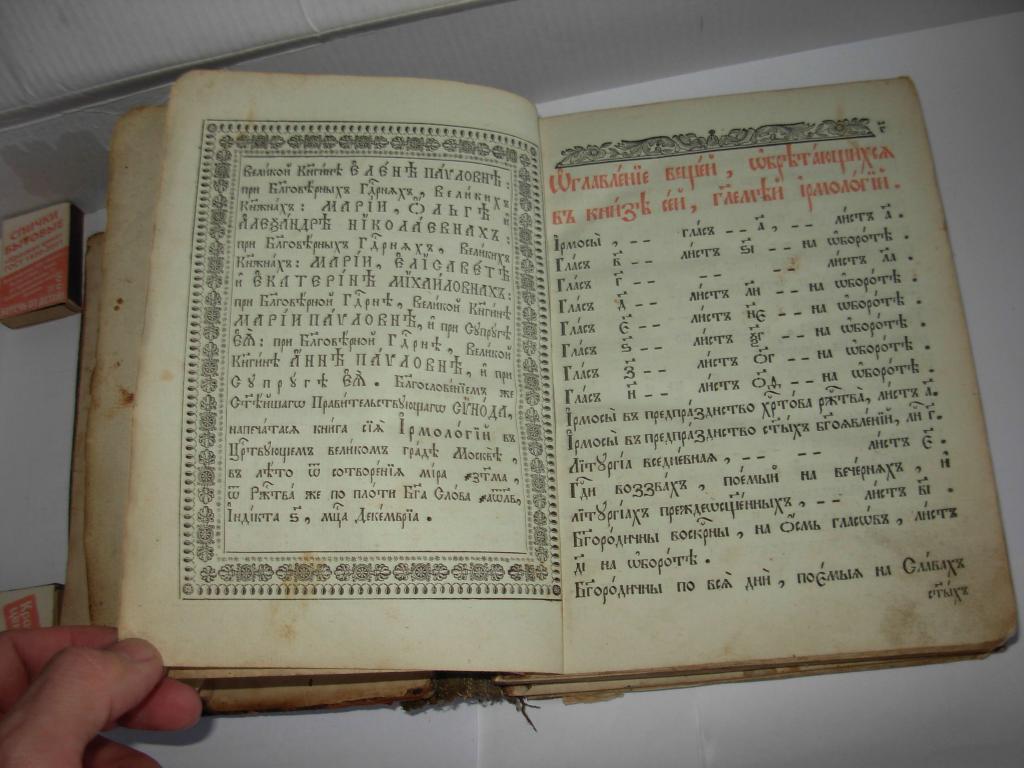 СПИЧКИ
БЫТОВЫЕ
Великой Кнѧгинѣ ЕЛЕНѢ ПАѴЛОВНѢ:
при Бл҃говѣрныхъ Гдⷭ҇рняхъ, Великихъ
Кнѧжнахъ: МАРІИ, Ѻ҆ЛЬГѢ и҆
А҆леѯа́ндрѣ НІКОЛАЕВНАХЪ:
при Бл҃говѣрныхъ Гдⷭ҇рняхъ, Великихъ
Кнѧжнахъ: МАРІИ, Е҆ЛІСАВЕТѢ
и҆ Е҆КАТЕРІНѢ МІХАИЛОВНАХЪ:
при Бл҃говѣрной Гдⷭ҇рнѣ, Великой Кнѧгинѣ
МАРІИ ПАѴЛОВНѢ, и҆ при Супругѣ
Е҆Ѧ҆: при Бл҃говѣрной Гдⷭ҇рнѣ, Великой
Кнѧгинѣ А҆ННѢ ПАѴЛОВНѢ, и҆ при
Супругѣ Е҆Ѧ҆. Бл҃гословенїемъ же
Ст҃ѣйшагѡ Правительствующагѡ СѴ҆НОДА,
напечатасѧ книга сїѧ І҆рмологі́й въ
Цⷭ҇рствующемъ великомъ градѣ Москвѣ,
въ лѣто ѿ сотворе́нїѧ мі́ра ҂зтма,
ѿ Рж҇тва̀ же по пло́ти Бг҃а Сло́ва ҂аѡл҃в,
І҆ндікта ѕ҃, мцⷭ҇а Деке́мврїа.
Ѡ҆главле́нїе веще́й, ѡ҆брѣта́ющихсѧ
въ кни́зѣ се́й, гл҃емѣй і҆рмоло́гїй.
І҆рмосы̀, -- гла́съ -- а҃, -- ли́стъ а҃.
Гла́съ в҃ -- ли́стъ ѕ҃і -- на ѡ҆боро́тѣ.
Гла́съ г҃ -- -- ли́стъ л҃а.
Гла́съ д҃ -- ли́стъ л҃и -- на ѡ҆боро́тѣ.
Гла́съ є҃ -- ли́стъ н҃є -- на ѡ҆боро́тѣ.
Гла́съ ѕ҃ -- ли́стъ ѯ҃г -- на ѡ҆боро́тѣ.
Гла́съ з҃ -- ли́стъ ѻ҃г -- на ѡ҆боро́тѣ.
Гла́съ и҃ -- ли́стъ -- на ѡ҆боро́тѣ.
І҆рмосы̀ въ предпра́зднство хрⷭ҇то́ва ржⷭ҇тва̀, ли́стъ
І҆рмосы̀ въ предпра́зднство ст҃ы́хъ бг҃оѧвле́нїй,
Літургі́а вседне́внаѧ, -- -- ли́стъ
Гдⷭ҇и воззва́хъ, пое́мый на вече́рнѧхъ, и҆
літургі́ахъ преждеѡсщ҃е́нныхъ, -- ли́стъ
Бг҃оро́дичны воскрⷭ҇ны, на ѻ҆́смь гласѡ́въ, ли́стъ
на ѡ҆боро́тѣ.
Бг҃оро́дичны по всѧ̑ дни̑, пое́мыѧ на Сла́вахъ
ст҃ы́хъ